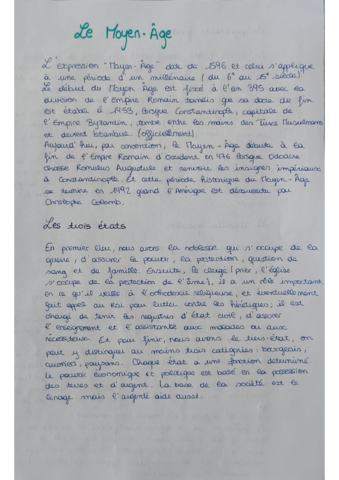 Le Moyen-Âge
L'expression "Moyen-Âge" date de 1596 et celui s'applique
à une période d'un millénaire (du 6e au 15e siècle)
Le début du Moyen Age est fixé à l'an 395 avec la
division de l'Empire Romain tandis que sa date de fin
est établie à 1453, lorsque Constantinople, capitale de
l'Empire Byzantin, tombe entre les mains des Turcs Musulmans
et devient Istanbul. (officiellement)
Aujourd'hui, par convention, le Moyen-Âge débute à la
fin de l'Empire Romain d'Occident en 476 lorsque Odoacre
chasse Romulus Augustule et renvoie les insignes impériaux
à Constantinople. Et cette période historique du Moyen-Âge
se termine en 1492 quand l'Amérique est découverte par
Christophe Collomb.
Les trois états
En premier lieu, nous avons la noblesse qui s'occupe de la
guerre, d'assurer le pouvoir, la protection, question de
sang et de famille. Ensuite, le clergé (prier, l'église
s'occupe de la protection de l'âme), il a un rôle important
en ce qu'il veille à l'orthodoxie religieuse, et éventuellement
fait appel au Roi pour lutter contre les hérétiques; il est
chargé de tenir les registres d'état civil, d'assurer
l'enseignement et l'assistante aux malades ou aux
nécessiteux. Et pour finir, nous avons le tiers-état, on
peut y distinguer au moins trois catégories: bourgeois,
ouvriers, paysans. Chaque état a une fonction déterminé.
Le pouvoir économique et politique est basé en la possession
des terres et d'argent. La base de la société est le
lignage mais l'argent aide aussi.